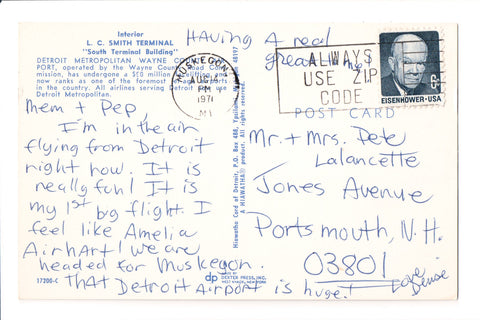 Interior
L. C. SMITH TERMINAL
"South Terminal Building"
DETROIT METROPOLITAN WAYNE COUNTY
PORT, operated by the Wayne County Road Com-
mission, has undergone a $50 million facelifting, and
now ranks as one of the foremost
in the country. All airlines serving Detroit use
Detroit Metropolitan.
HAVING A real
great time
Mem + Pep
I'm in the air
flying from Detroit
right now. It is
really fun! It is
my 1st big flight. I
feel like Amelia
Airhart! We are
headed for Muskegon.
THAT Detroit Airport is huge!
Love
Denise
17200-C
dp
DEXTER PRESS, INC.
WEST NYACK, NEW YORK
Hiawatha Card of Detroit, P.O. Box 488, Ypsilanti, 48197
A HIAWATHA® CARD All rights reserved.
MUSKEGON
AUG
PM
1971
MI
ALWAYS
USE ZIP
CODE
6¢
EISENHOWER·USA
POST CARD
Mr. + Mrs. Pete
Lalancette
Jones Avenue
Portsmouth, N.H.
03801